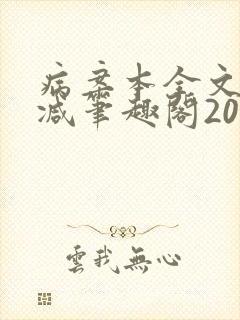 病案本全文
减笔趣阁20
雲我無心